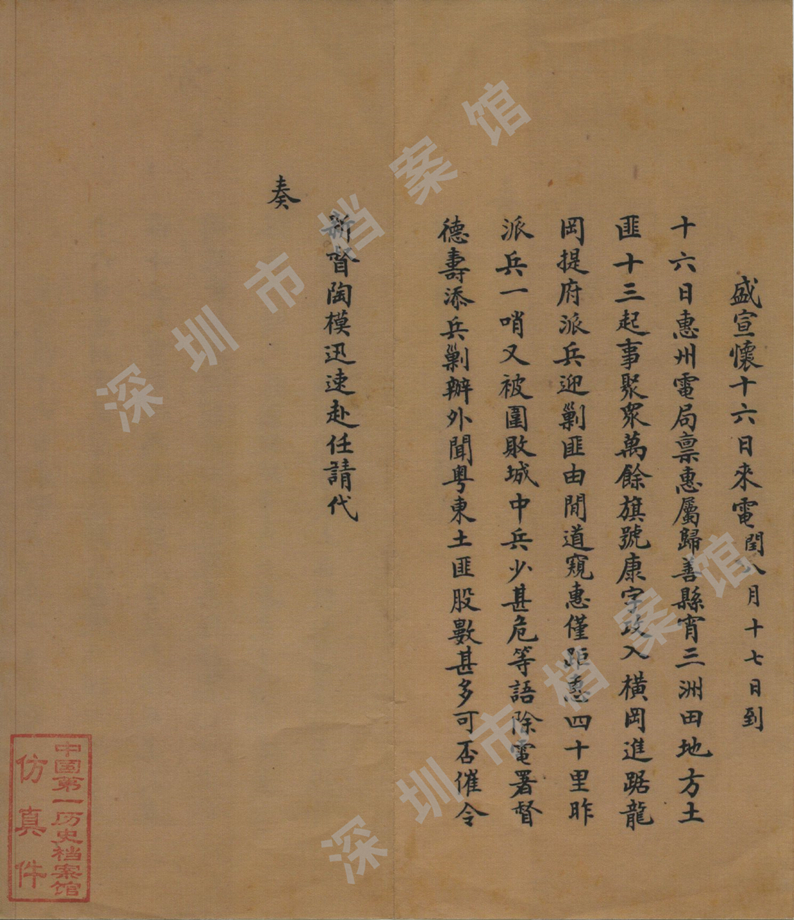 盛宣懷十六日來電閏八月十七日到
十六日惠州電局禀惠屬歸善縣宵三洲田地方土
匪十三起事聚衆萬餘旗號康字攻入橫岡進踞龍
岡提府派兵迎剿匪由間道窺惠僅距惠四十里昨
派兵一哨又被圍敗城中兵少甚危等語除電署督
德壽添兵剿辦外聞粤東土匪股數甚多可否催令
新督陶模迅速赴任請代
奏
中國第一历史档案馆
仿真件
深圳市档案馆
深圳市档案馆